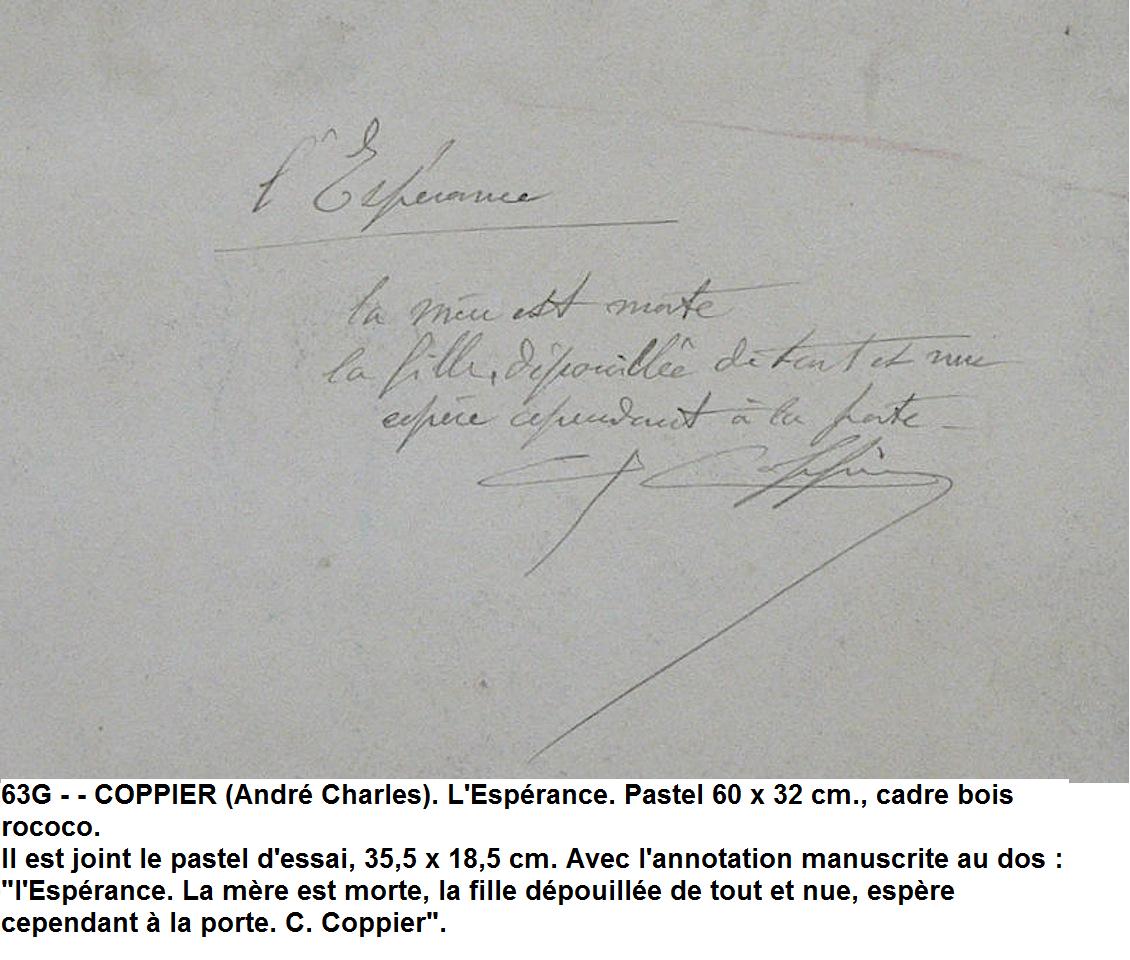 l'Espérance
la mère est morte
la fille, dépouillée de tout et nue
espère cependant à la porte -
C Coppier
63G - - COPPIER (André Charles). L'Espérance. Pastel 60 x 32 cm., cadre bois
rococo.
Il est joint le pastel d'essai, 35,5 x 18,5 cm. Avec l'annotation manuscrite au dos :
"l'Espérance. La mère est morte, la fille dépouillée de tout et nue, espère
cependant à la porte. C. Coppier".